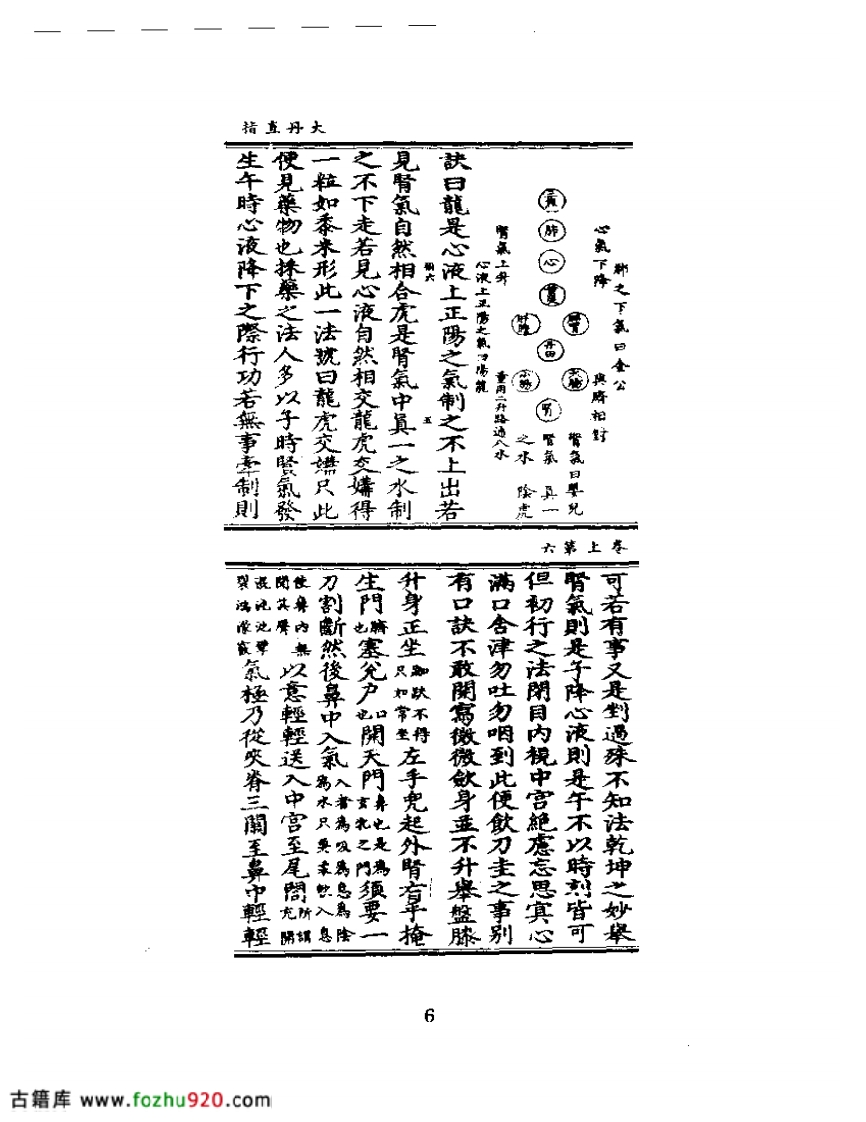 大丹直指
肺之下氣曰金公
心氣下降
與臍相對
腎氣曰嬰兒
腎氣 真一
之水 陰虎
肺
心
丹田
大腸
腎
肝膽
小腸
腎氣上升
心液上正陽之氣曰陽龍
訣曰龍是心液上正陽之氣制之不上出若
見腎氣自然相合虎是腎氣中真一之水制
之不下走若見心液自然相交龍虎交媾得
一粒如黍米形此一法號曰龍虎交媾只此
便見藥物也採藥之法人多以子時腎氣發
生午時心液降下之際行功若無事牽制則
卷上第六
可若有事又是對過殊不知法乾坤之妙舉
腎氣則是子降心液則是午不以時刻皆可
但初行之法閉目內視中宮絕慮忘思冥心
滿口含津勿吐勿咽到此便飲刀圭之事別
有口訣不敢開寫微微斂身並不升舉盤膝
升身正坐跏趺不得只如常坐左手兜起外腎右手掩
生門臍也塞兌戶口也開天門鼻也是為玄牝之門須要一
刀割斷然後鼻中入氣入者為吸為息為陰為水只要柔軟入息
使鼻內無聞其聲以意輕輕送入中宮至尾閭所謂充開
混沌池擘裂鴻濛竅氣極乃從夾脊三關至鼻中輕輕
6
古籍库 www.fozhu920.com